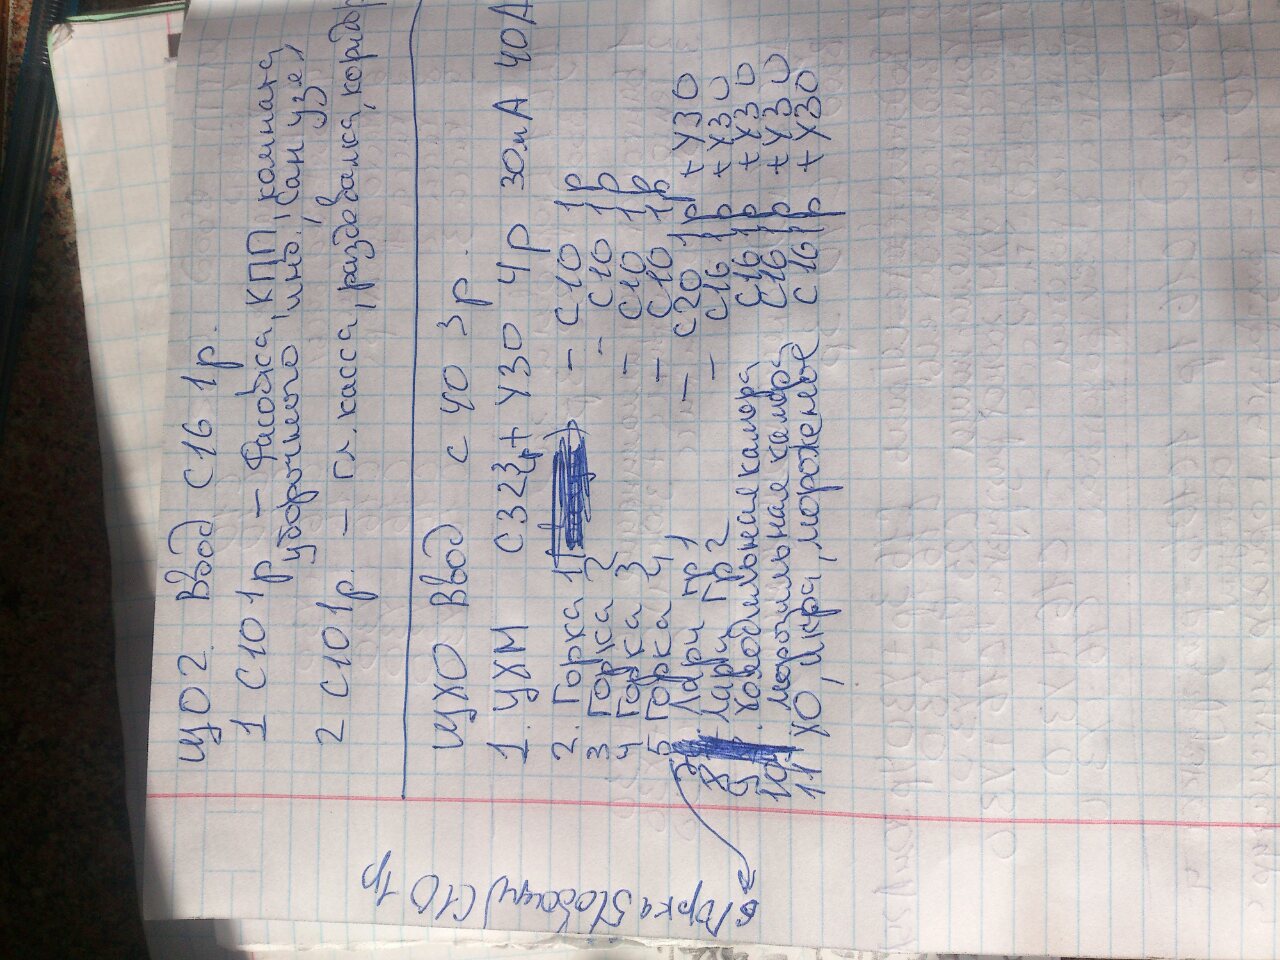 ЩО2 Ввод С16 1р.
1 С10 1р – Фасовка, КПП, комната
уборочного инв., Сан узел,
2 С10 1р. – гл. касса, раздевалка, коридор
ЩХО Ввод с 40 3р.
1. ЦХМ С32 3р + УЗО 4р 30мА 40А
2. Горка 1 – С10 1р
3 Горка 2 – С10 1р
4 Горка 3 – С10 1р
5 Горка 4 – С10 1р
6 Горка 5 (овощи) С10 1р
7 Лари гр 1 – С20 1р + УЗО
8 Лари гр 2 – С16 1р + УЗО
9 холодильная камера С16 1р + УЗО
10 морозильная камера С16 1р + УЗО
11 ХО, икра, мороженое С16 1р + УЗО